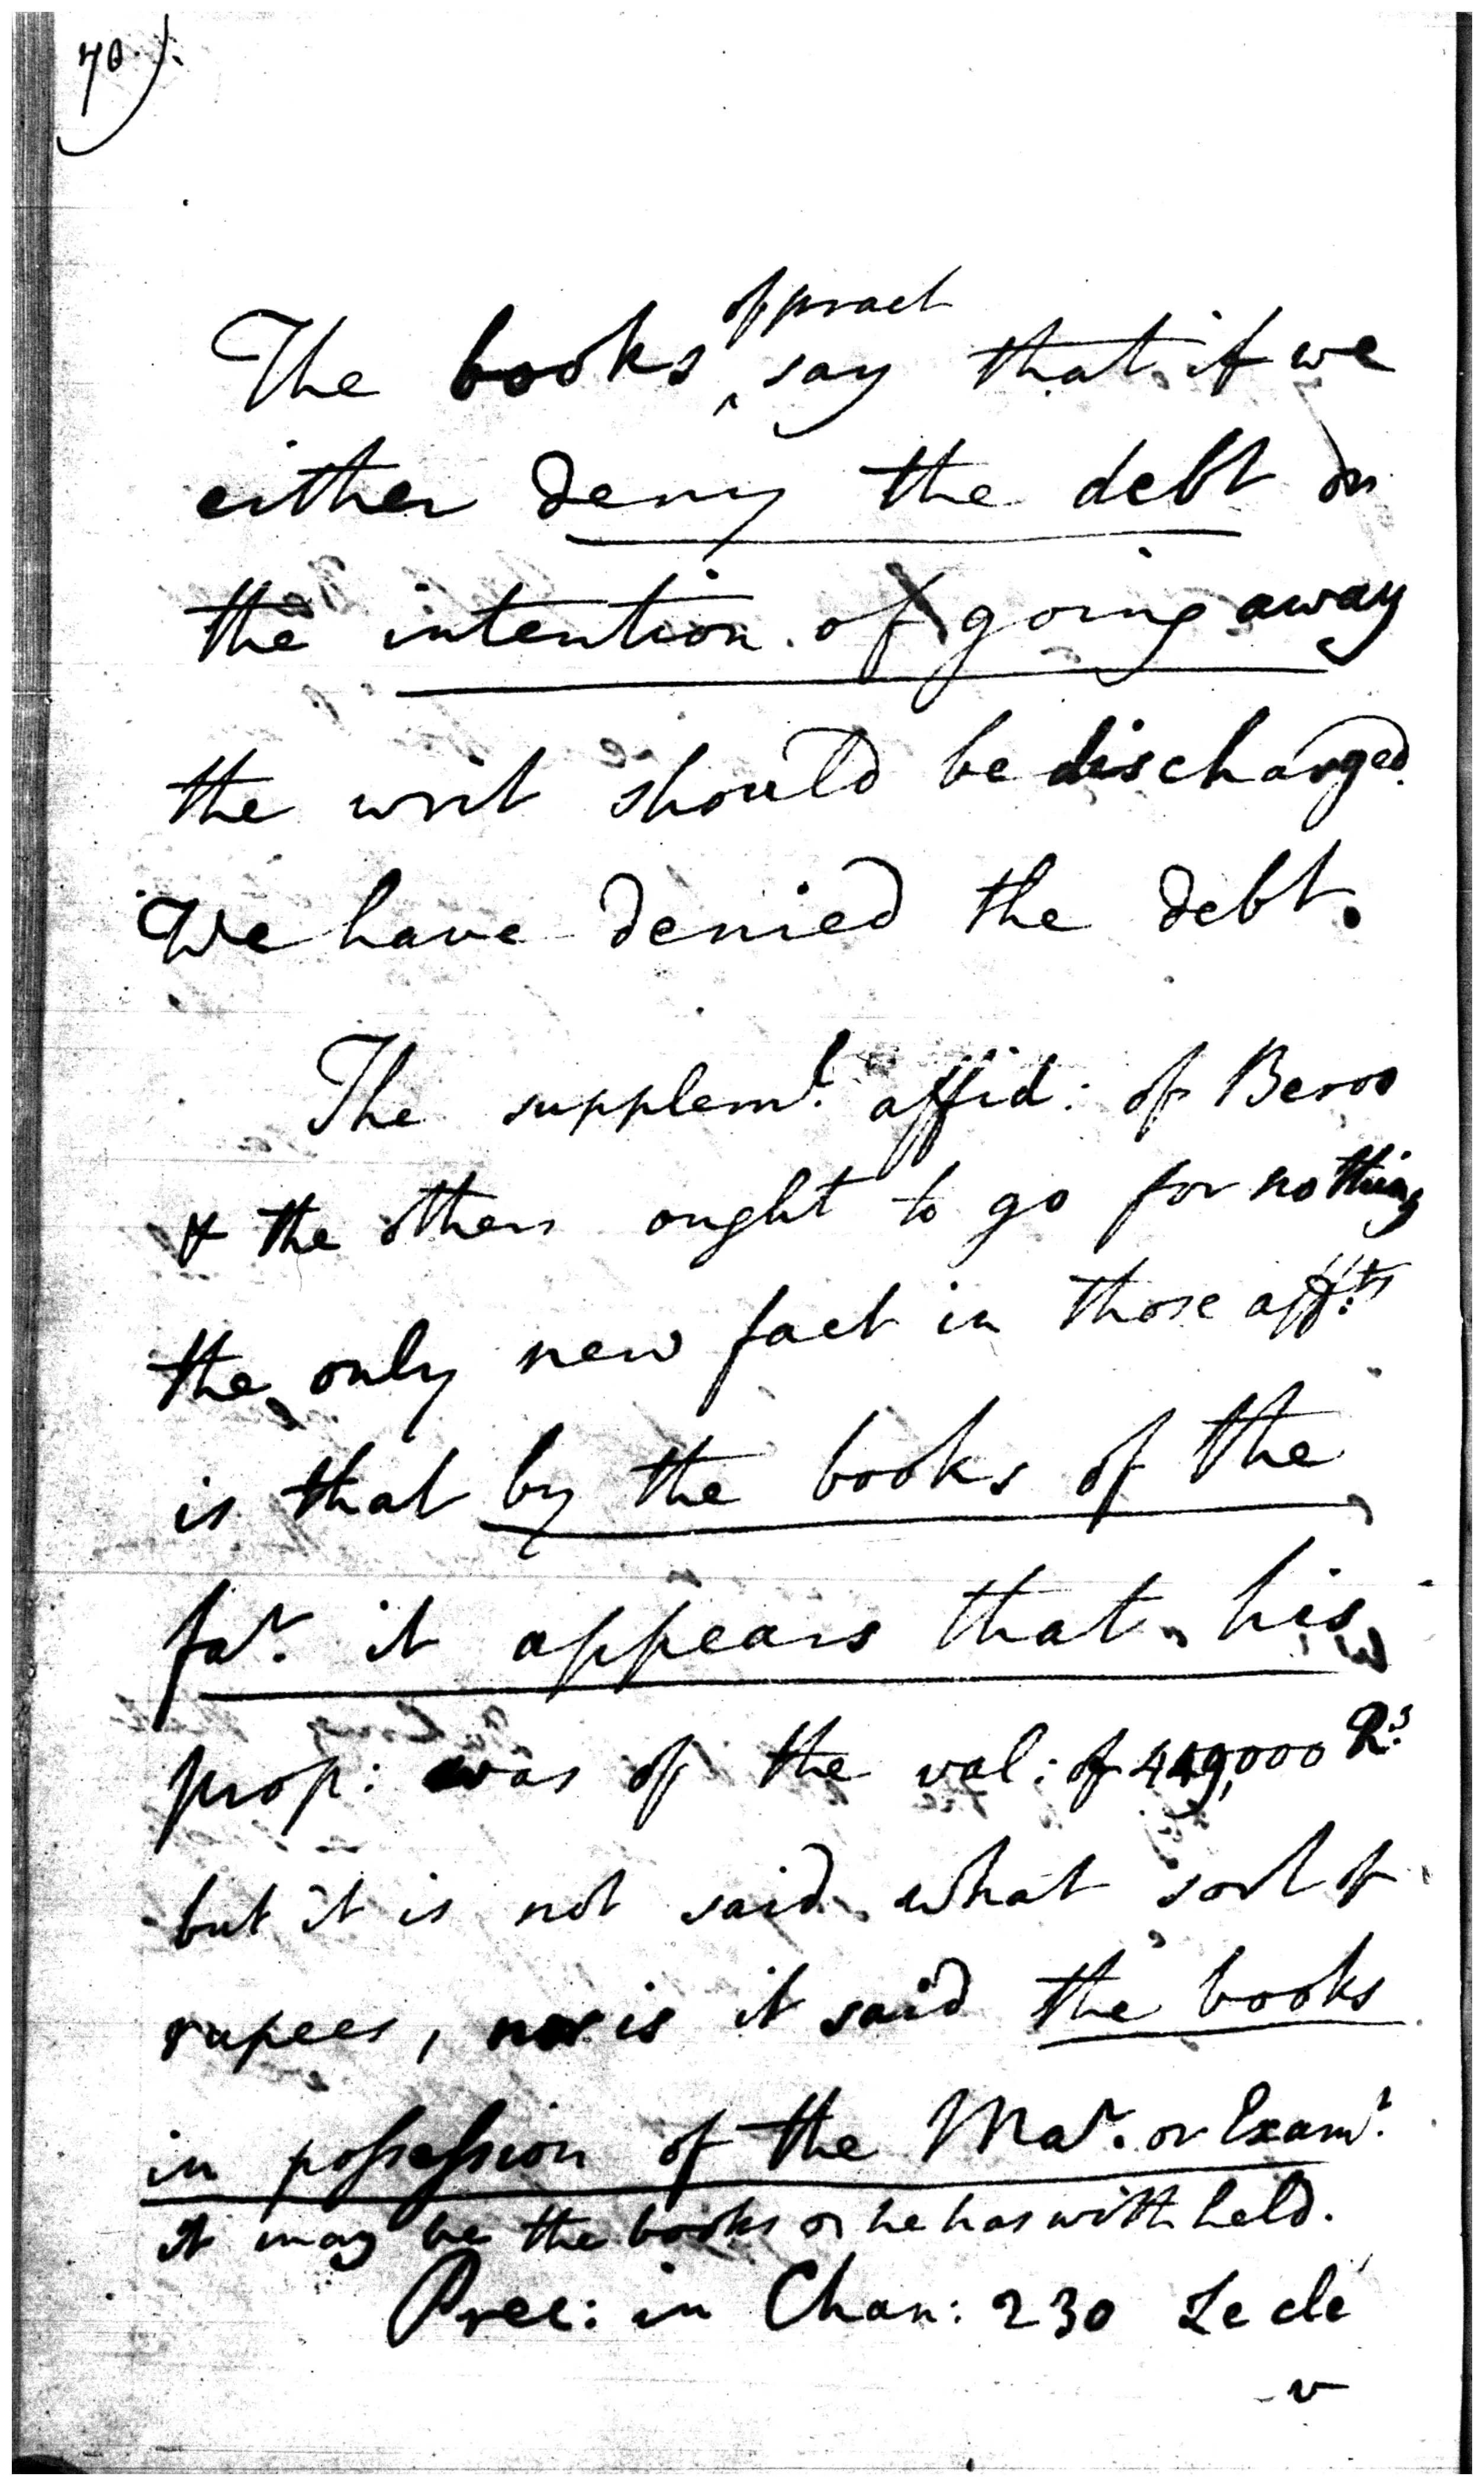 70).
of pract
The books ^ say that if we
either deny the debt or
the intention of going away
the writ should be discharged.
We have denied the debt.
The supplemt. affid: of Beroo
& the others ought to go for nothing
the only new fact in those affts.
is that by the books of the
far. it appears that his
prop: was of the val: of 449,000 Rs.
but it is not said what sort of
rupees, nor is it said the books
in possession of the Mar. or Examr.
it may be the books he has withheld.
Prec: in Chan: 230
v